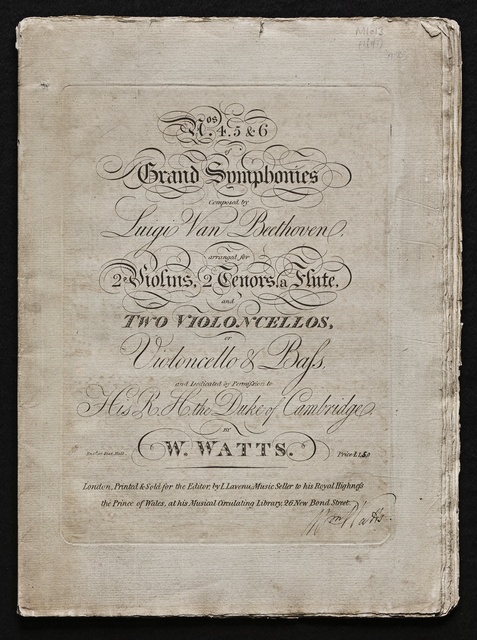 Nos. 4. 5 & 6
of
Grand Symphonies
Composed by
Luigi Van Beethoven,
arranged for
2 Violins, 2 Tenors, a Flute,
and
TWO VIOLONCELLOS,
or
Violoncello & Bass,
and Dedicated by Permission to
His R. H. the Duke of Cambridge,
BY
W. WATTS.
Enter'd at Stat. Hall.
Price £1.5.0
London, Printed & Sold for the Editor, by L. Lavenu, Music Seller to his Royal Highness
the Prince of Wales, at his Musical Circulating Library, 26 New Bond Street.
Wm Watts